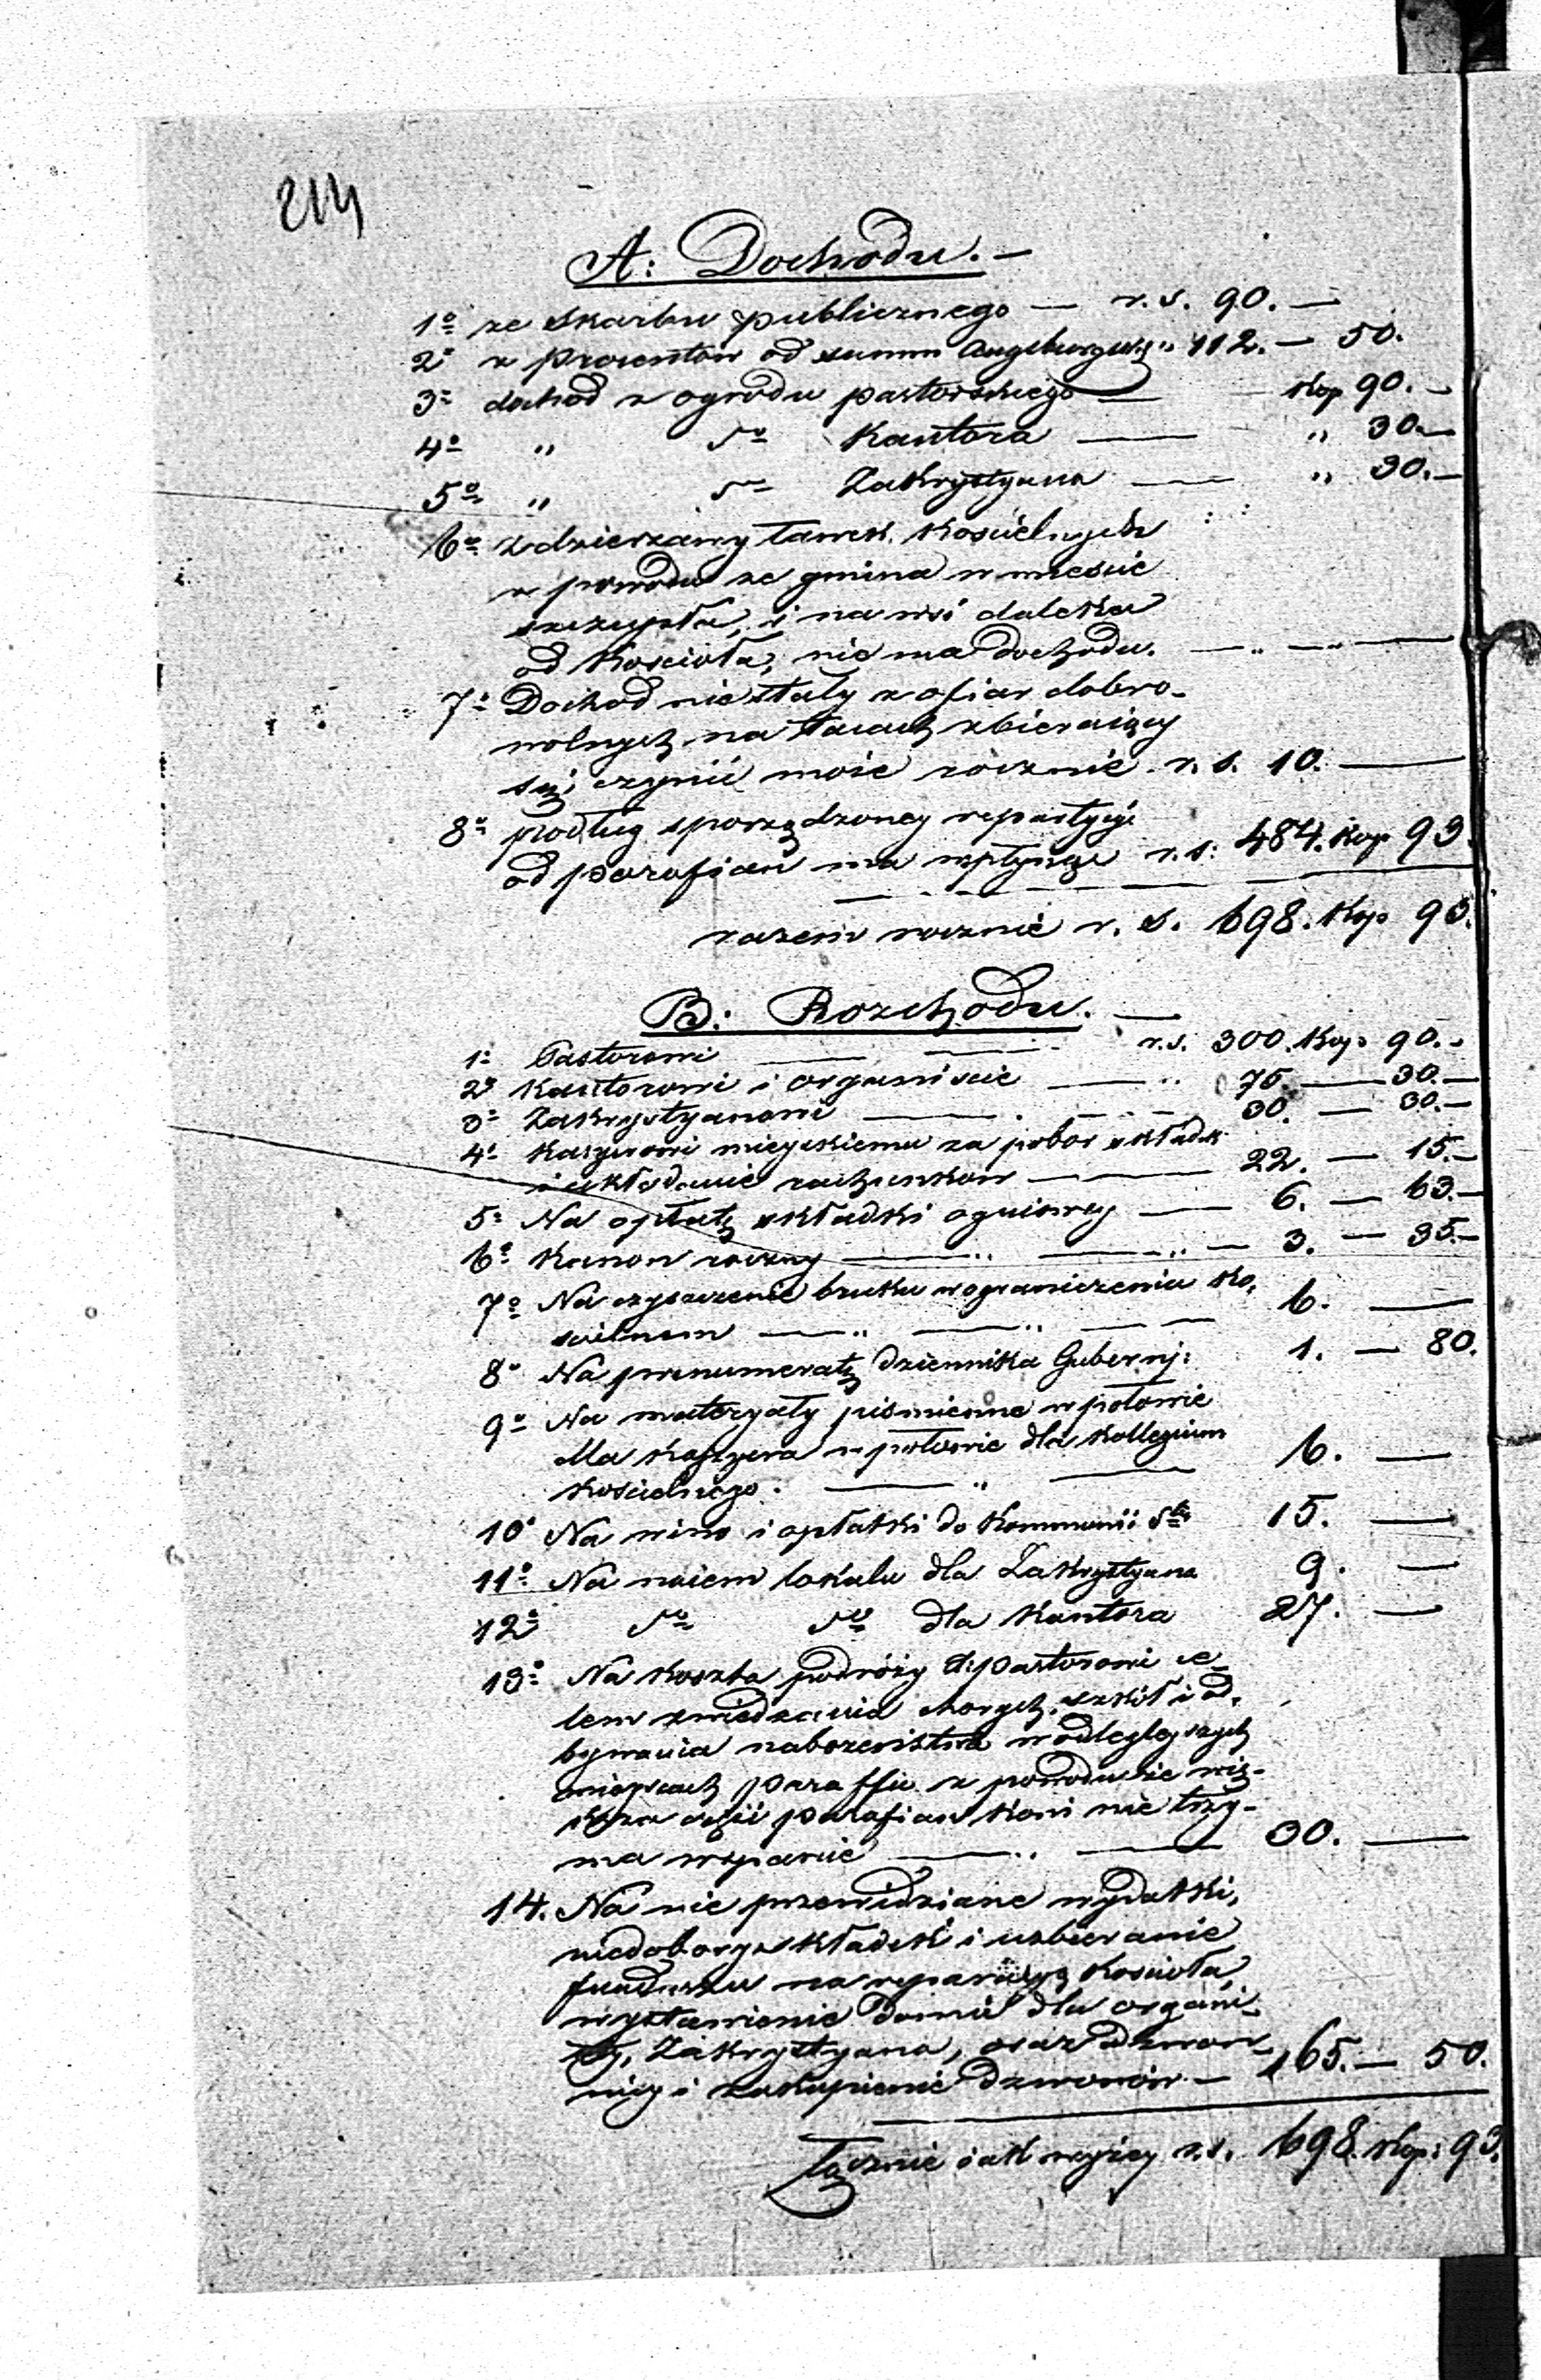 214
A: Dochodu. —
1o ze Skarbu publicznego — r. s. 90. —
2o z procentow od summ Augsburgskich " 112. — 50.
3o dochod z ogrodu pastorskiego — kop 90. —
4o " do Kantora — " 30. —
5o " do Zakrystyana — " 30. —
6o z dzierzawy ławek Koscielnych
z powodu ze gmina w miescie
szczupła, i na wsi daleka
od Koscioła, nie ma dochodu. — " — " —
7o Dochod nie stały z ofiar dobro-
wolnych na tacach zbieraiący
się czynić moie rocznie r. s. 10. —
8o podług sporządzoney repartycyi
od parafian ma wpłynąć r. s. 484. kop 93.
razem rocznie r. s. 698. kop 93.
B: Rozchodu. —
1o Pastorowi — — r. s. 300. kop: 90. —
2o Kantorowi i organiscie — " 75. — 30. —
3o Zakrystyanowi — 30. — 30. —
4o Kassyerowi mieyskiemu za pobor składek
i układanie rachunkow — 22. — 15. —
5o Na opłatę składki ogniowey — 6. — 63. —
6o Kanon roczny — " — " — 3. — 35. —
7o Na czyszczenie bruku w ograniczeniu ko-
scielnem — " — " — 6. —
8o Na prenumeratę Dziennika Gubernj: 1. — 80.
9o Na materyały pismienne w połowie
dla Kassyera w połowie dla Kollegium
Koscielnego. — " — 6. —
10o Na wino i opłatki do Kommunii Stej 15. —
11o Na naiem lokalu dla Zakrystyana 9. —
12o do do dla Kantora 27. —
13o Na koszta podróży Pastorowi ce-
lem zwiedzania chorych, szkół i od-
bywania nabozenstwa w odległeyszych
mieyscach paraffii z powodu ze wię-
ksza część parafian koni nie trzy-
ma wsparcie — " — 30. —
14. Na nie przewidziane wydatki,
niedobory składek i uzbieranie
funduszu na reparacyą Koscioła,
wystawienie domu dla organi-
sty, Zakrystyana, oraz dzwon-
nicy i zakupienie dzwonów — 165. — 50.
Łącznie iak wyżey r. s. 698. kop: 93.